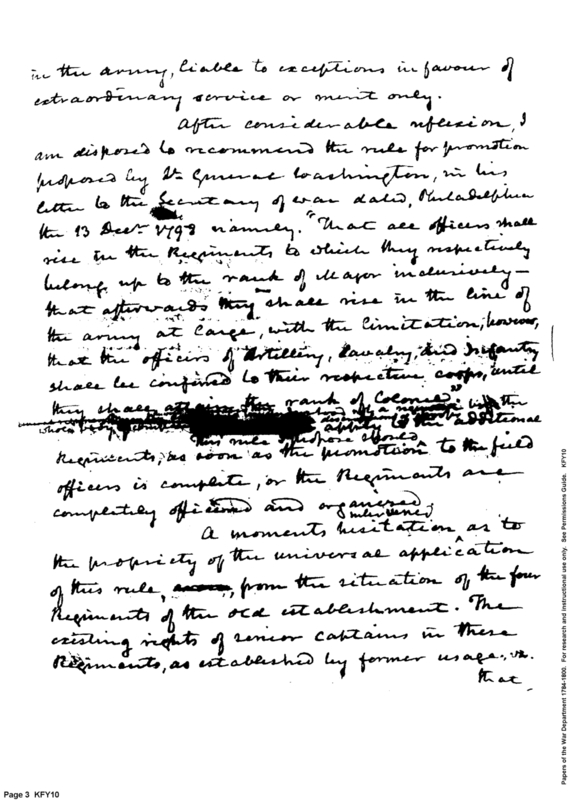 in the army, liable to exceptions in favour of
extraordinary service or merit only.
After considerable reflexion, I
am disposed to recommend the rule for promotion
proposed by Lt General Washington, in his
letter to the Secretary of war dated, Philadelphia
the 13 Decr 1798 namely. "That all officers shall
rise in the Regiments to which they respectively
belong up to the rank of Major inclusively—
that afterwards they shall rise in the line of
the army at large, with the limitation, however,
that the officers of Artillery, Cavalry, and Infantry
shall be confined to their respective corps, until
they shall attain the rank of Colonel"
apply to the additional
This rule I propose should
Regiments, as soon as the promotion to the field
officers is complete, or the Regiments are
completely officered and organised,
intervened
A moments hesitation as to
the propriety of the universal application
of this rule, from the situation of the four
Regiments of the old establishment. The
existing rights of senior captains in these
Regiments, as established by former usage, vz.
that
Page 3 KFY10
Papers of the War Department 1784-1800. For research and instructional use only. See Permissions Guide. KFY10